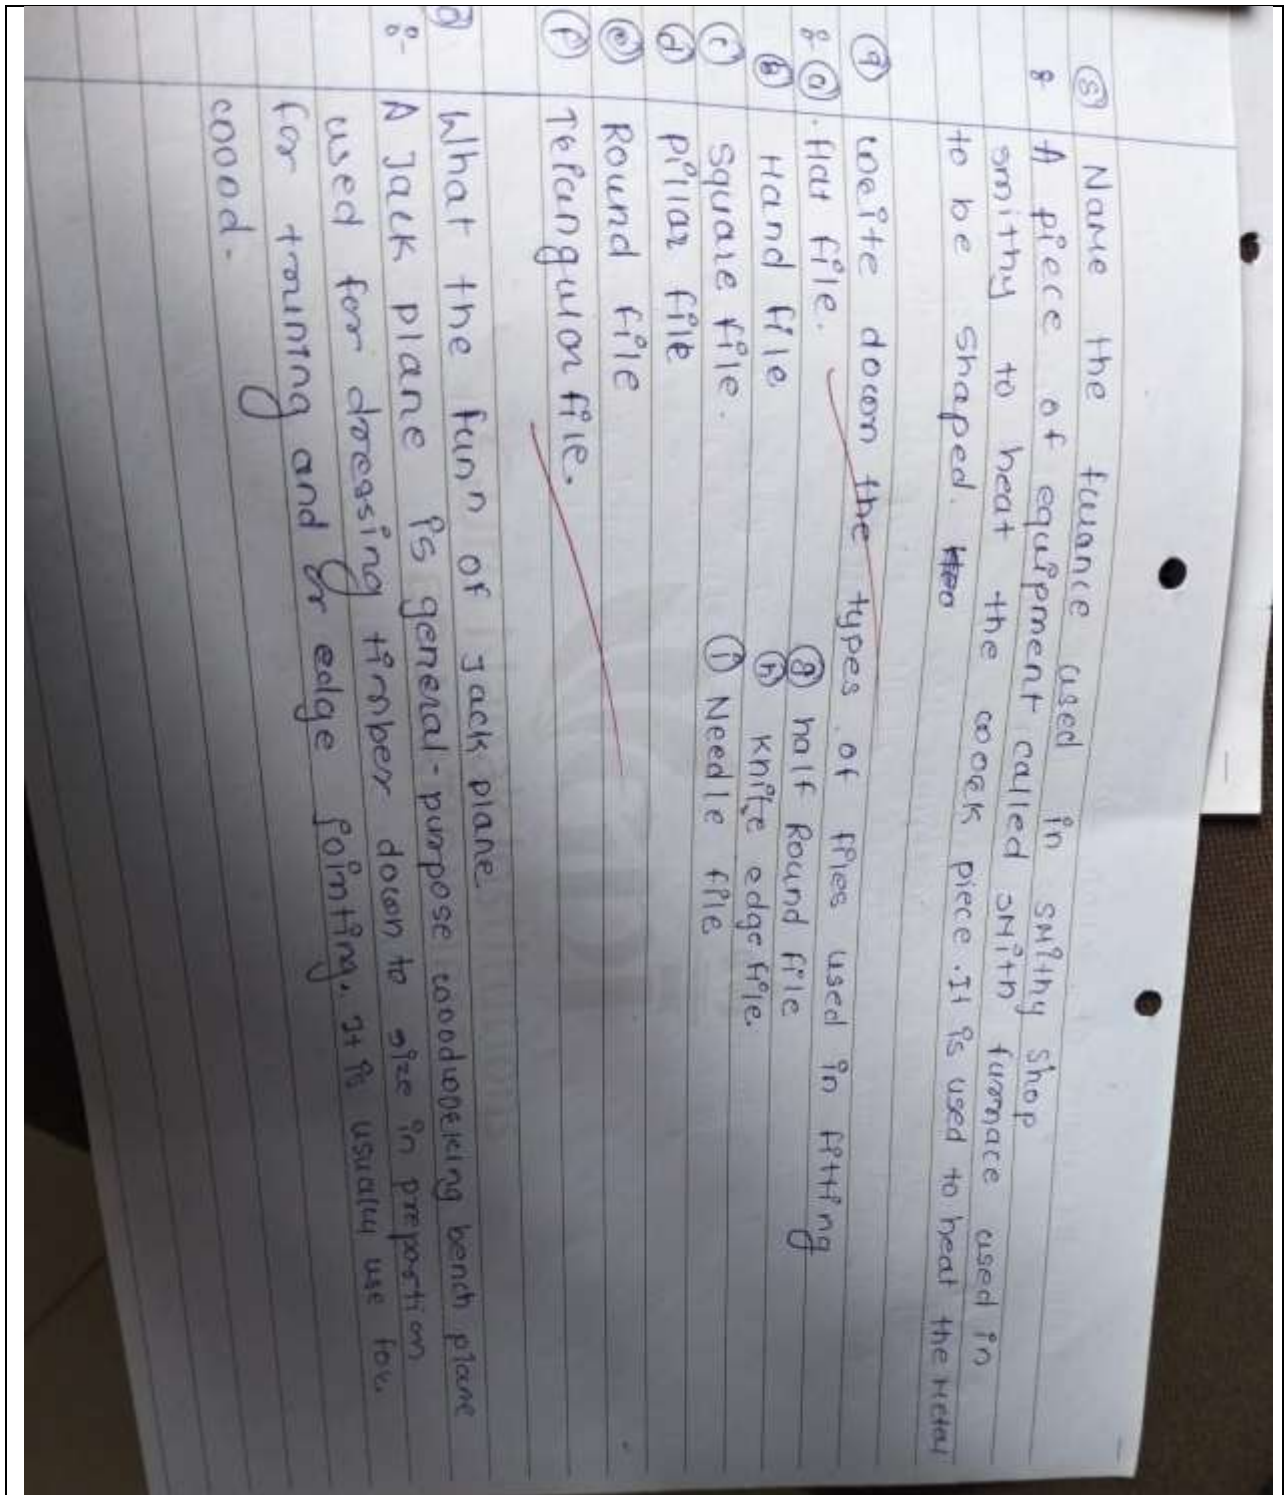 ⑧ Name the fuuance used in smithy shop
:- A piece of equipment called smith furrnace used in
smithy to heat the woork piece. It is used to heat the metal
to be shaped.
⑨ write down the types of files used in fitting
:- ⓐ . flat file.
ⓑ Hand file
ⓒ square file.
ⓓ pillar file
ⓔ Round file
ⓕ Teiangular file.
ⓖ half Round file
ⓗ knife edge file.
ⓘ Needle file
What the funⁿ of Jack plane
:- A Jack plane is general-purpose woodworking bench plane
used for dressing timber down to size in preparation
for truning and or edge jointing. It is usually use for
wood.